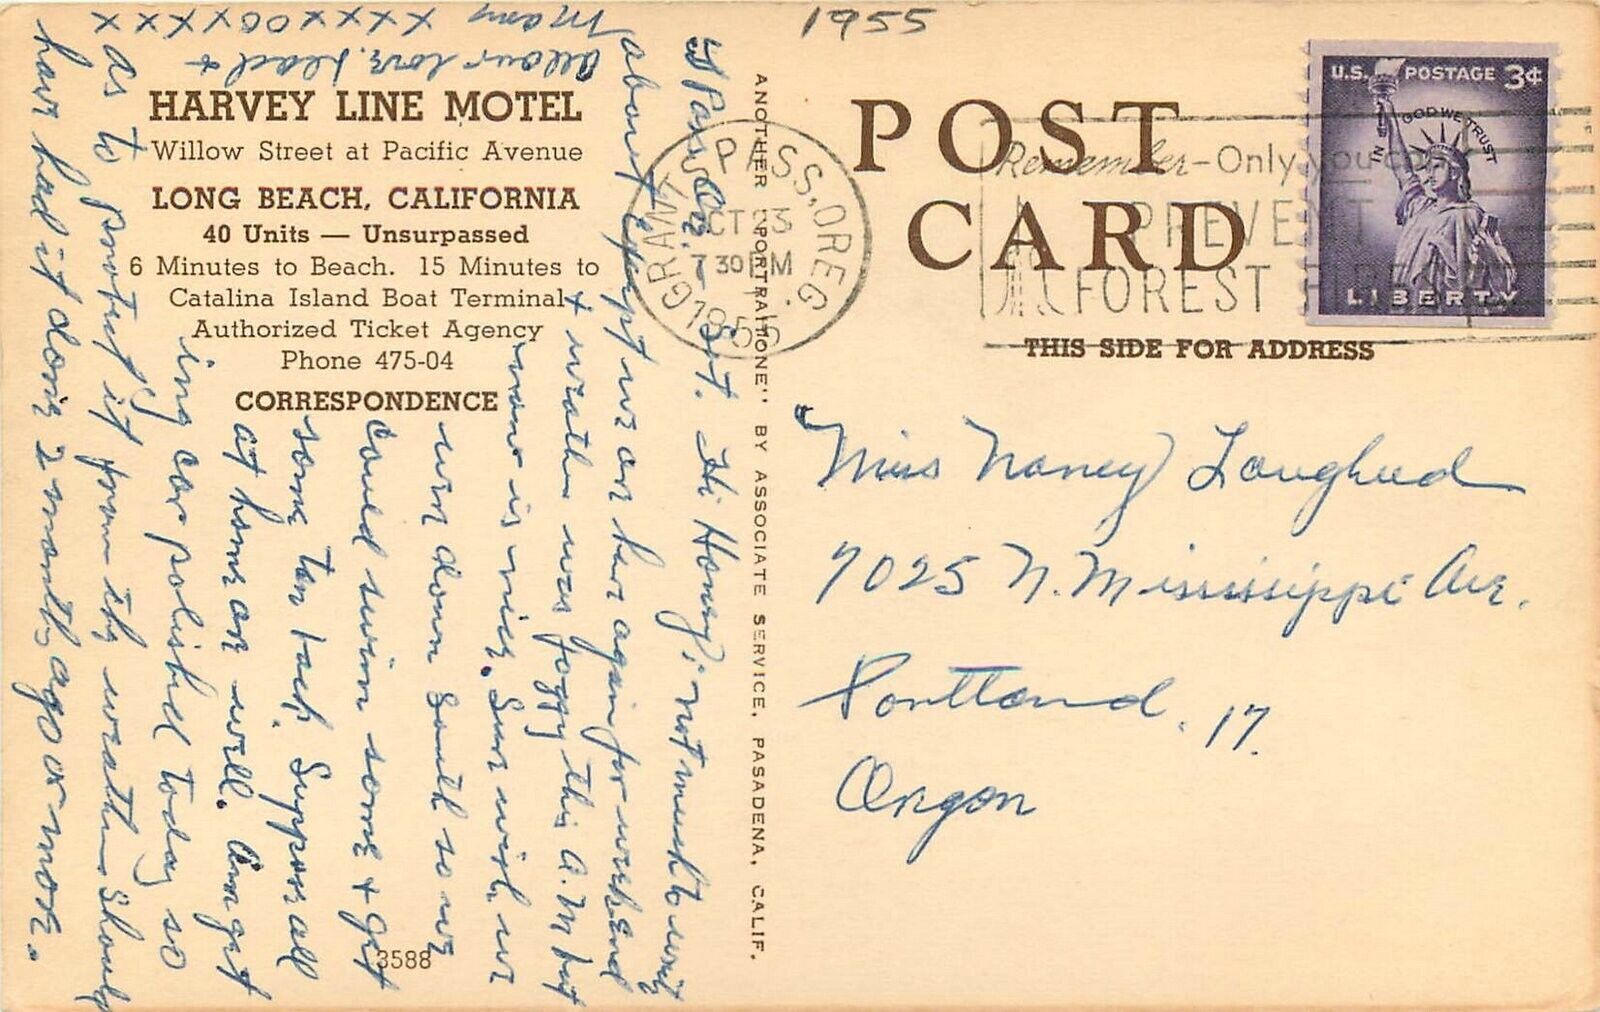 1955
HARVEY LINE MOTEL
Willow Street at Pacific Avenue
LONG BEACH, CALIFORNIA
40 Units — Unsurpassed
6 Minutes to Beach. 15 Minutes to
Catalina Island Boat Terminal
Authorized Ticket Agency
Phone 475-04
CORRESPONDENCE
3588
ANOTHER "PORTRAITIONE" BY ASSOCIATE SERVICE, PASADENA, CALIF.
POST
CARD
THIS SIDE FOR ADDRESS
U.S. POSTAGE 3¢
IN GOD WE TRUST
LIBERTY
GRANTS PASS, OREG.
OCT 23
7 30 PM
1955
Remember-Only you can
PREVENT
FOREST FIRES
Miss Nancy Loughead
7025 N. Mississippi Ave.
Portland, 17.
Oregon
Pass Ore. - Sat. Hi Honey; not much to write
about except we are here again for weekend
+ weather was foggy this A.M but
now is nice. Sure wish we
were down South so we
could swim some + get
some tan back. Suppose all
at home are well. Am gett
ing car polished today so
as to protect it from the weather. Should
have had it done 2 months ago or more.
All our love, Dead +
Mary xxxxooxxxxxx